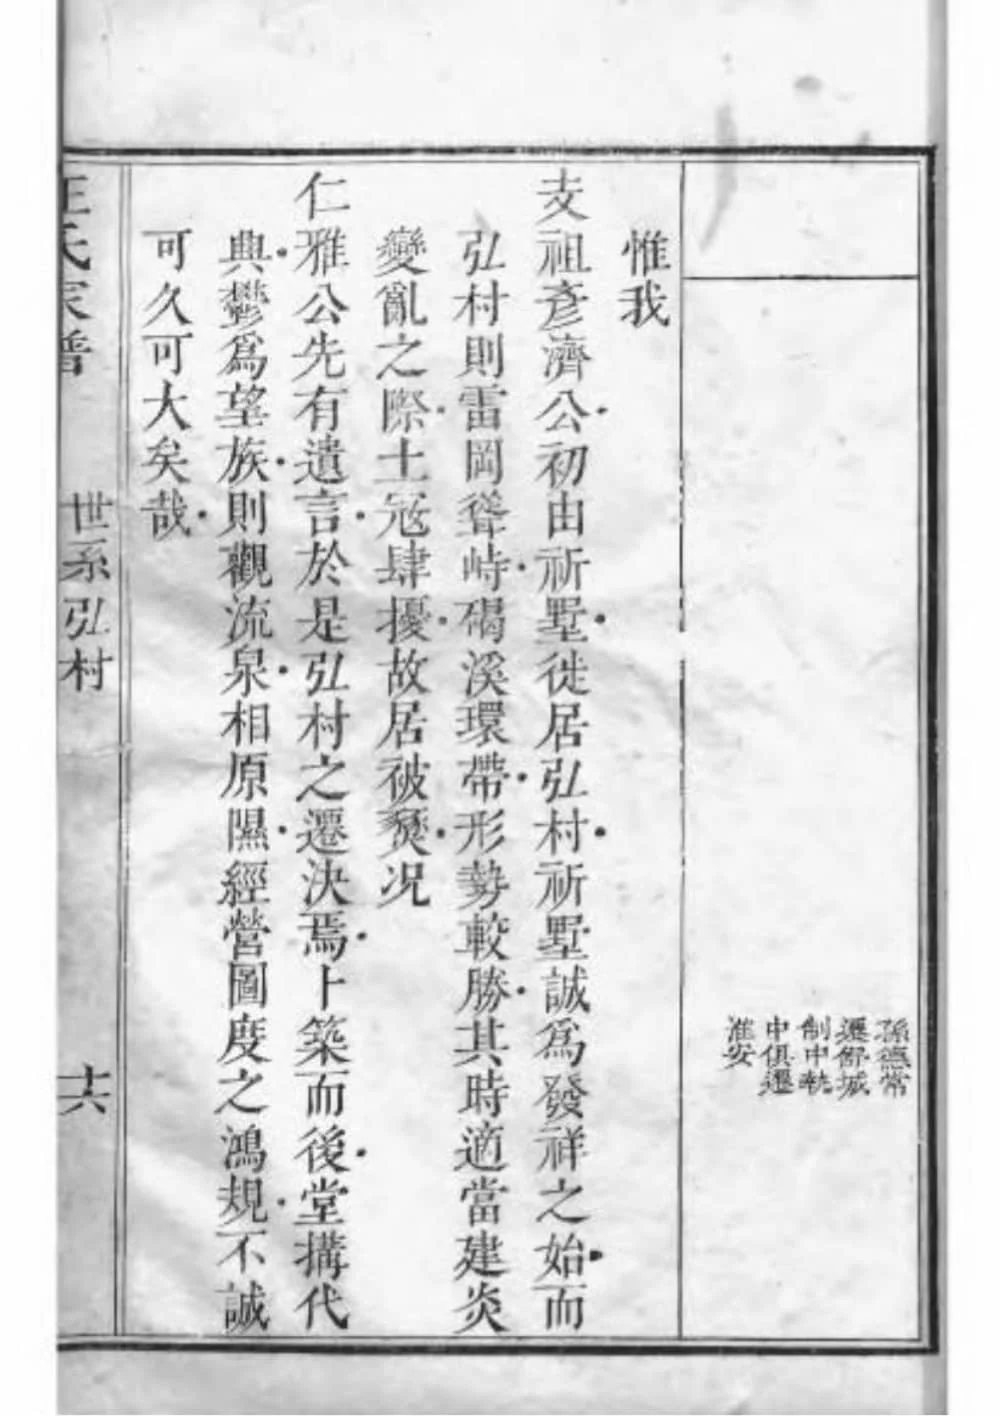 孫應常
遷舒城
制中執
中俱遷
淮安
惟我
支祖彥濟公初由祈墅徙居弘村祈墅誠爲發祥之始而
弘村則雷岡聳峙碣溪環帶形勢較勝其時適當建炎
變亂之際土冦肆擾故居被燹况
仁雅公先有遺言於是弘村之遷決焉卜築而後堂搆代
典鬱爲望族則觀流泉相原隰經營圖度之鴻規不誠
可久可大矣哉
汪氏家譜 世系弘村 十六